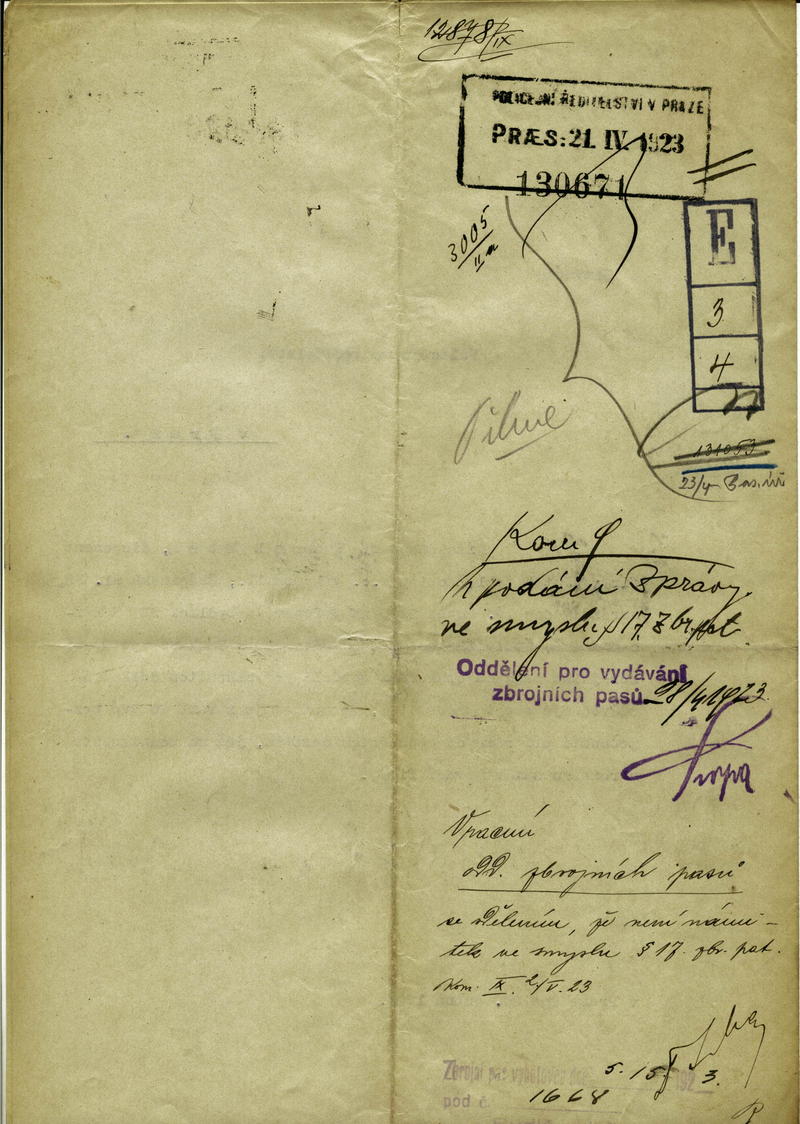 12878/IX
POLICEJNÍ ŘEDITELSTVÍ V PRAZE
PRÆS: 21. IV. 1923
130671
3005
II a
E
3
4
Pilně
131053
23/4
Kom
k podání zprávy
ve smyslu § 17. zbr. pat.
Oddělení pro vydávání
zbrojních pasů 28/4 1923
Vrácení
odd. zbrojních pasů
se sdělením, že není námi-
tek ve smyslu § 17. zbr. pat.
Kom. IX. 2/V. 23
Zbrojní pas
5. 192 3.
pod č. 1668